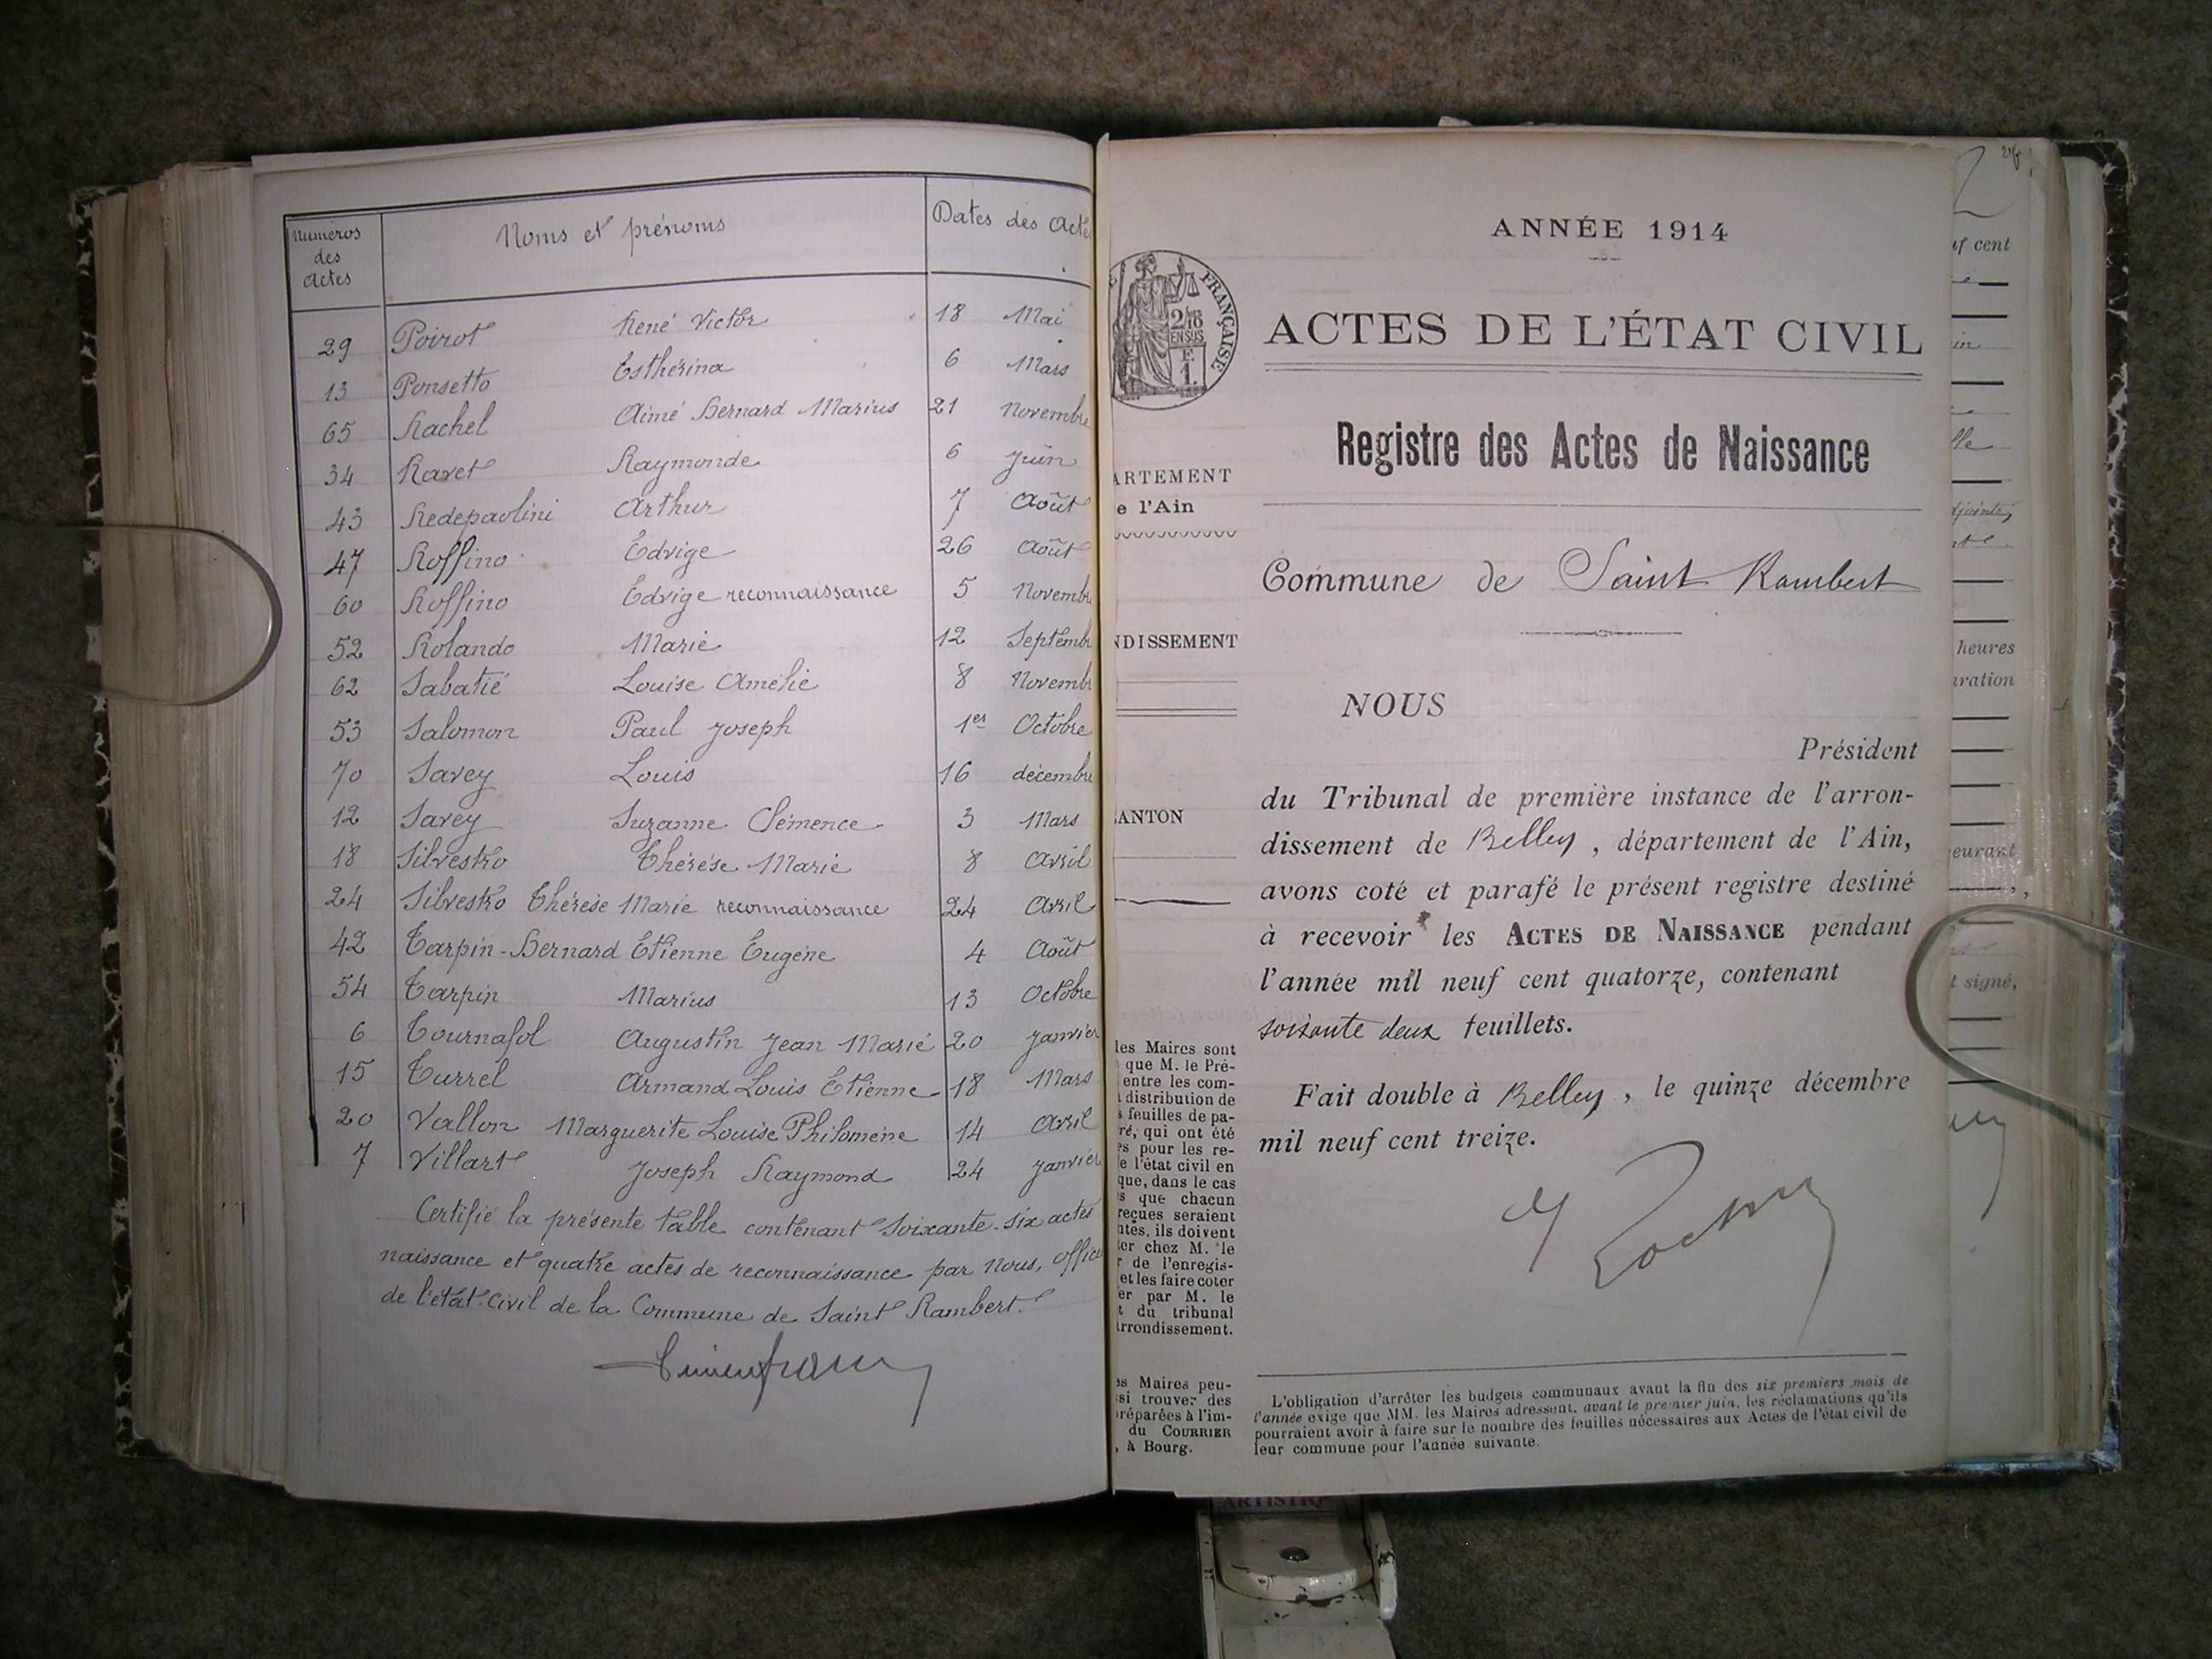 Numéros des actes Noms et prénoms Dates des Acte
29 Poirot René Victor 18 Mai
13 Ponsetto Esthérina 6 Mars
65 Rachel Aimé Bernard Marius 21 Novembre
34 Ravet Raymonde 6 Juin
43 Redepaolini Arthur 7 Août
47 Roffino Edvige 26 Août
60 Roffino Edvige reconnaissance 5 Novemb
52 Rolando Marie 12 Septemb
62 Sabatié Louise Amélie 8 Novemb
53 Salomon Paul Joseph 1er Octobre
70 Savey Louis 16 décembre
12 Savey Suzanne Clémence 3 Mars
18 Silvestro Thérèse Marie 8 Avril
24 Silvestro Thérèse Marie reconnaissance 24 Avril
42 Tarpin-Bernard Etienne Eugène 4 Août
54 Tarpin Marius 13 Octobre
6 Tournafol Augustin Jean Marie 20 Janvier
15 Turrel Armand Louis Etienne 18 Mars
20 Vallon Marguerite Louise Philomène 14 Avril
7 Villart Joseph Raymond 24 Janvier
Certifié la présente table contenant Soixante-six actes
naissance et quatre actes de reconnaissance par Nous, offici
de l'état-Civil de la Commune de Saint Rambert.
ANNÉE 1914
FRANÇAISE
2/10
EN SUS
F.
1.
ACTES DE L'ÉTAT CIVIL
Registre des Actes de Naissance
ARTEMENT
e l'Ain
Commune de Saint Rambert
NDISSEMENT
NOUS
Président
du Tribunal de première instance de l'arron-
ANTON
dissement de Belley, département de l'Ain,
avons coté et parafé le présent registre destiné
à recevoir les ACTES DE NAISSANCE pendant
l'année mil neuf cent quatorze, contenant
soixante deux feuillets.
Fait double à Belley, le quinze décembre
mil neuf cent treize.
les Maires sont
que M. le Pré-
entre les com-
distribution de
feuilles de pa-
ré, qui ont été
s pour les re-
e l'état civil en
que, dans le cas
s que chacun
reçues seraient
ntes, ils doivent
er chez M. le
r de l'enregis-
et les faire coter
er par M. le
t du tribunal
rrondissement.
es Maires peu-
si trouver des
réparées à l'im-
du COURRIER
, à Bourg.
L'obligation d'arrêter les budgets communaux avant la fin des six premiers mois de
l'année exige que MM. les Maires adressent, avant le premier juin, les réclamations qu'ils
pourraient avoir à faire sur le nombre des feuilles nécessaires aux Actes de l'état civil de
leur commune pour l'année suivante.
uf cent
in
lle
djointe,
heures
aration
eurant
t signé,
ARTISTIQ